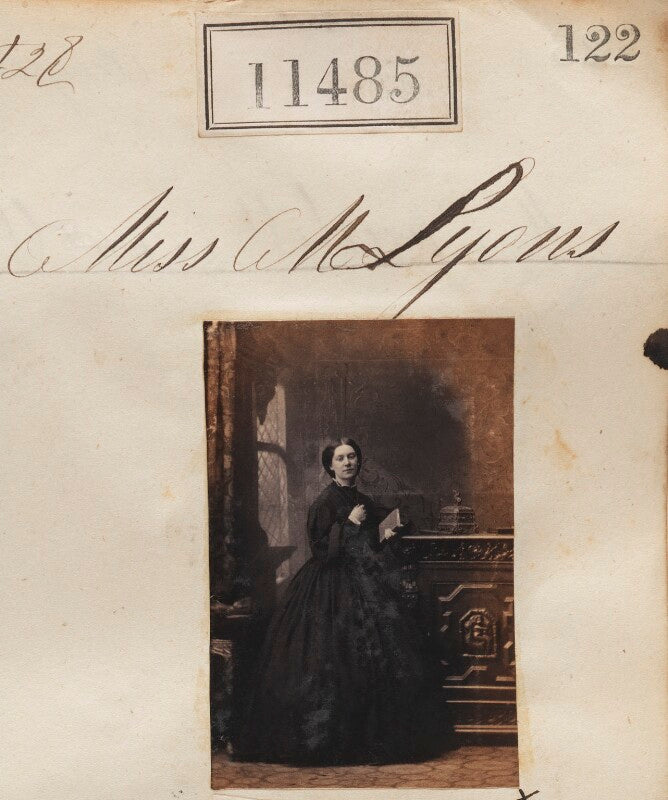 11485
122
Miss M Lyons